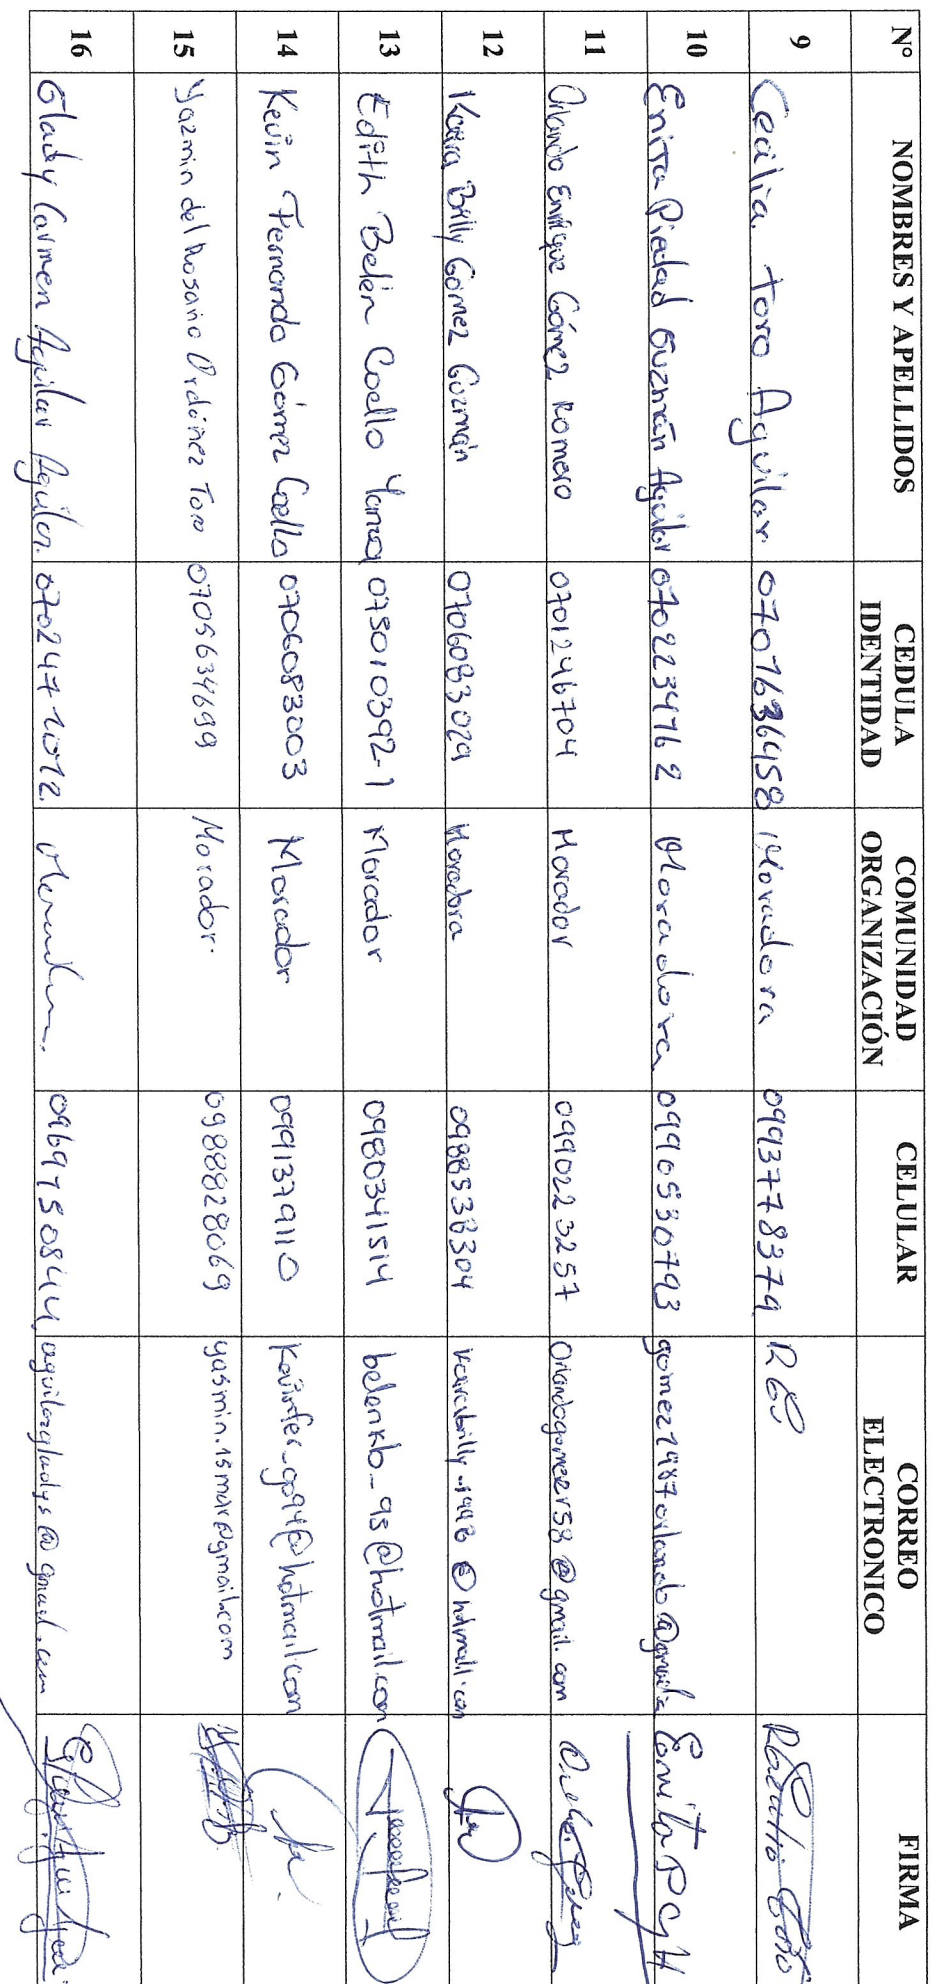 Nº NOMBRES Y APELLIDOS CEDULA IDENTIDAD COMUNIDAD ORGANIZACIÓN CELULAR CORREO ELECTRONICO FIRMA
9 Cecilia Toro Aguilar. 0701636458 Moradora 0993778379
10 Enita Piedad Guzmán Aguilar 0702234762 Moradora 0990530793
11 Orlando Enrique Gómez Romero 0701246704 Morador 0990223257 orlandogomezr58@gmail.com
12 Kiara Brilly Gómez Guzmán 0706083029 Moradora 0988538304
13 Edith Belén Coello Yanza 075010392-1 Morador 0980341514 belenkb_95@hotmail.com
14 Kevin Fernando Gómez Coello 0706083003 Morador 0991379110 Kevinfer_go94@hotmail.com
15 Yazmin del Rosario Ordóñez Toro 0705634699 Morador. 0988828069 yasmin.15mar@gmail.com
16 Glady Carmen Aguilar Aguilar. 0969750844 aguilargladys@gmail.com